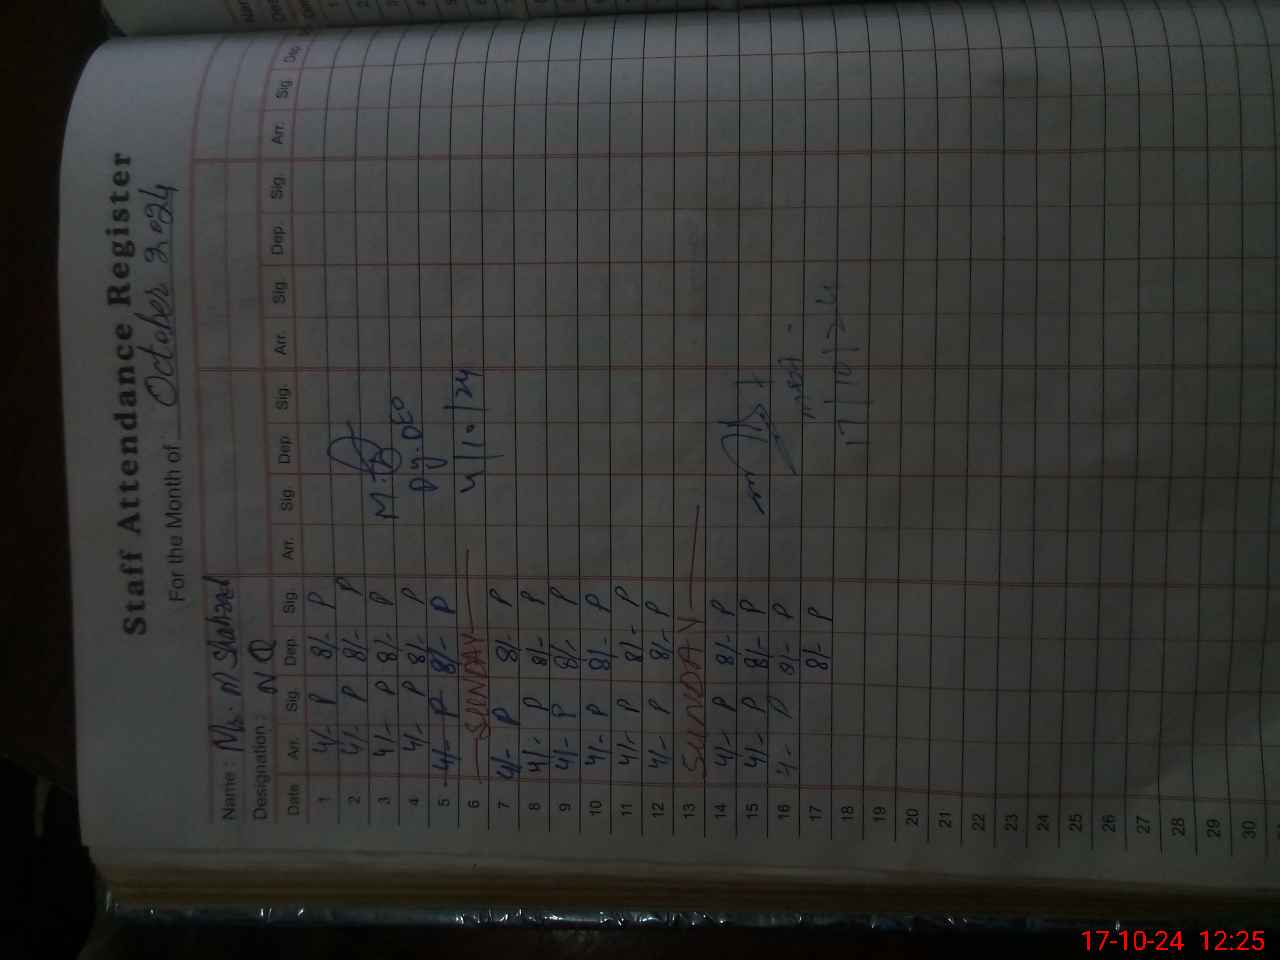 Staff Attendance Register
For the Month of October 2024
Name: Mr. M Shahzad
Designation: N Q
Date Arr. Sig. Dep. Sig. Arr. Sig. Dep. Sig. Arr. Sig. Dep. Sig. Arr. Sig. Dep
1 4/- P 8/- P
2 4/- P 8/- P
3 4/- P 8/- P
4 4/- P 8/- P
5 4/- P 8/- P
6 SUNDAY
7 4/- P 8/- P
8 4/- P 8/- P
9 4/- P 8/- P
10 4/- P 8/- P
11 4/- P 8/- P
12 4/- P 8/- P
13 SUNDAY
14 4/- P 8/- P
15 4/- P 8/- P
16 4/- P 8/- P
17 8/- P
18
19
20
21
22
23
24
25
26
27
28
29
30
Dy. DEO
4/10/24
17/10/24
17-10-24 12:25